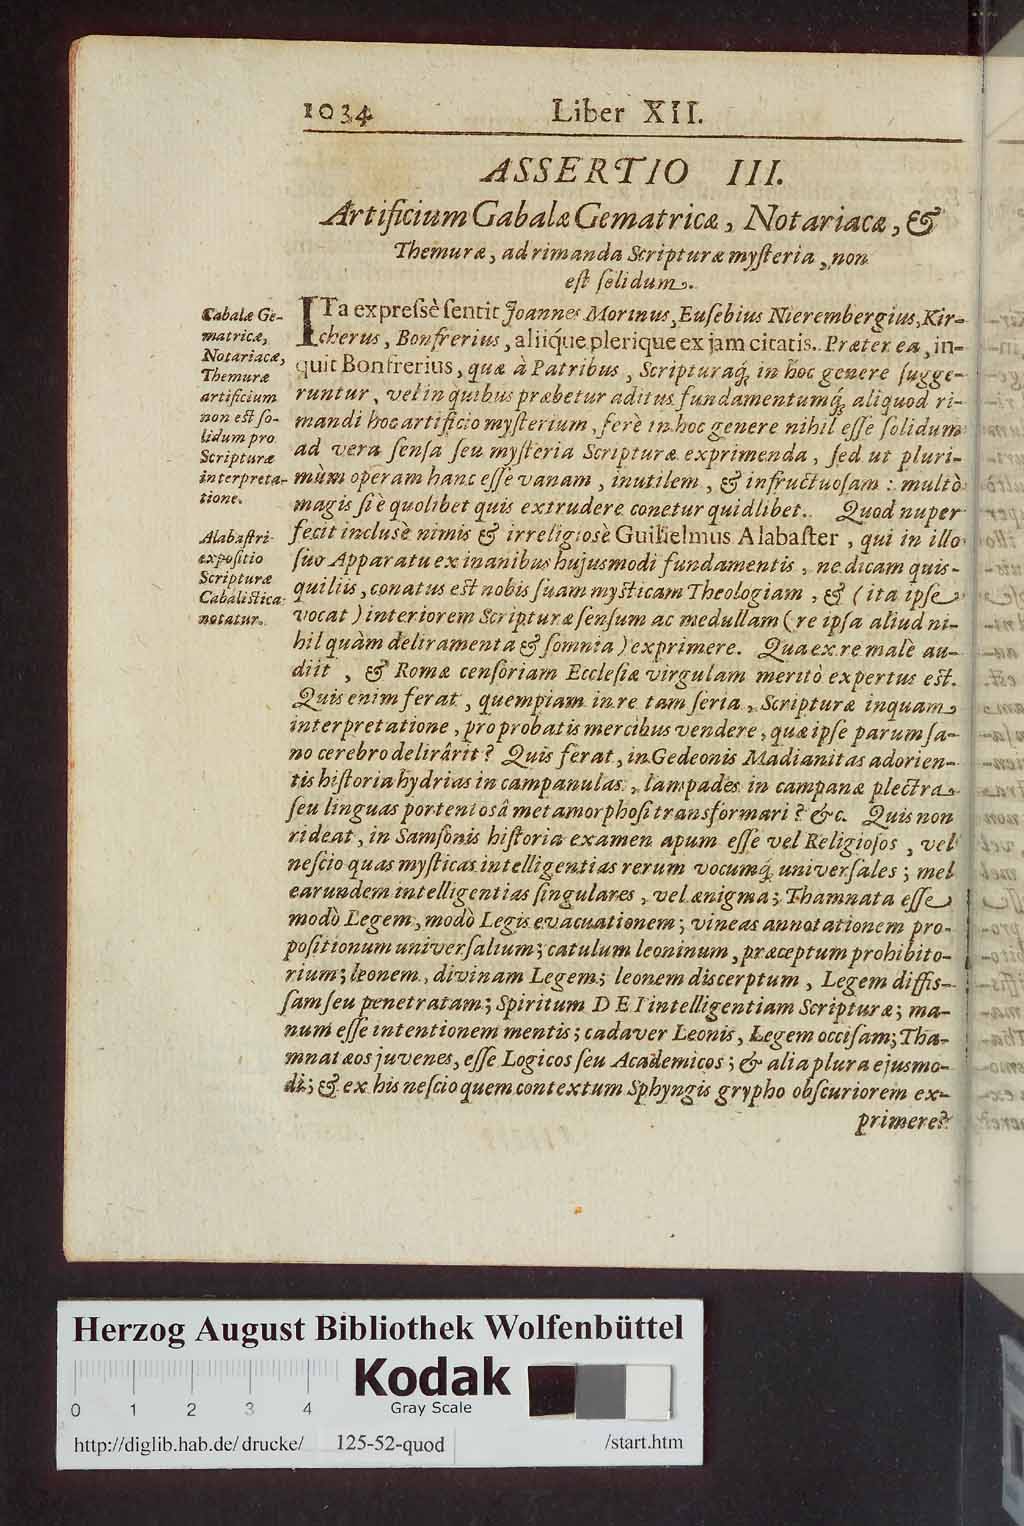 1034 Liber XII.
ASSERTIO III.
Artificium Gabalæ Gematricæ, Notariacæ, &
Themuræ, ad rimanda Scripturæ mysteria, non
est solidum.
Cabalæ Ge-
matricæ,
Notariacæ,
Themuræ
artificium
non est so-
lidum pro
Scripturæ
interpreta-
tione.
Alabastri
expositio
Scripturæ
Cabalistica
notatur.
ITa expressè sentit Joannes Morinus, Eusebius Nierembergius, Kir-
cherus, Bonfrerius, aliique plerique ex jam citatis. Præter ea, in-
quit Bonfrerius, quæ à Patribus, Scripturaq́; in hoc genere sugge-
runtur, vel in quibus præbetur aditus fundamentumq́; aliquod ri-
mandi hoc artificio mysterium, ferè in hoc genere nihil esse solidum
ad vera sensa seu mysteria Scripturæ exprimenda, sed ut pluri-
mùm operam hanc esse vanam, inutilem, & infructuosam: multò
magis si è quolibet quis extrudere conetur quidlibet. Quod nuper
fecit inclusè nimis & irreligiosè Guilielmus Alabaster, qui in illo
suo Apparatu ex inanibus hujusmodi fundamentis, ne dicam quis-
quiliis, conatus est nobis suam mysticam Theologiam, & (ita ipse
vocat) interiorem Scripturæ sensum ac medullam (re ipsa aliud ni-
hil quàm deliramenta & somnia) exprimere. Qua ex re malè au-
diit, & Romæ censoriam Ecclesiæ virgulam meritò expertus est.
Quis enim ferat, quempiam in re tam seria, Scripturæ inquam
interpretatione, pro probatis mercibus vendere, quæ ipse parum sa-
no cerebro delirârit? Quis ferat, in Gedeonis Madianitas adorien-
tis historia hydrias in campanulas, lampades in campanæ plectra
seu linguas portentosâ metamorphosi transformari? &c. Quis non
rideat, in Samsonis historia examen apum esse vel Religiosos, vel
nescio quas mysticas intelligentias rerum vocumq́; universales; mel
earundem intelligentias singulares, vel ænigma; Thamnata esse
modò Legem, modò Legis evacuationem; vineas annotationem pro-
positionum universalium; catulum leoninum, præceptum prohibito-
rium; leonem, divinam Legem; leonem discerptum, Legem diffis-
sam seu penetratam; Spiritum DEI intelligentiam Scripturæ; ma-
num esse intentionem mentis; cadaver Leonis, Legem occisam; Tha-
mnatæos juvenes, esse Logicos seu Academicos; & alia plura ejusmo-
di; & ex his nescio quem contextum Sphyngis grypho obscuriorem ex-
primere?
Herzog August Bibliothek Wolfenbüttel
Kodak
Gray Scale
0 1 2 3 4
http://diglib.hab.de/drucke/ 125-52-quod /start.htm